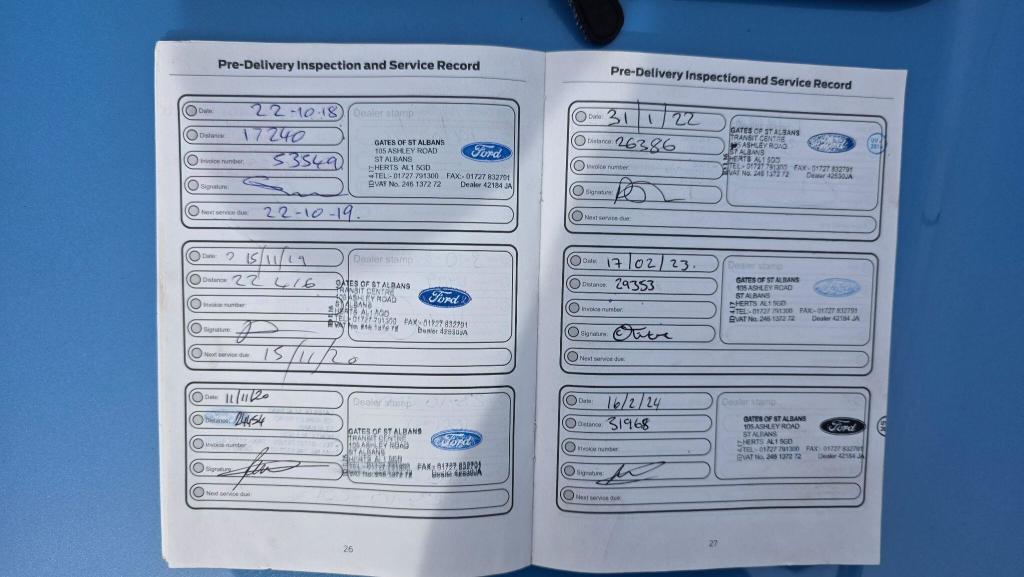 Pre-Delivery Inspection and Service Record
Date: 22-10-18
Distance: 17240
Invoice number: 53549
Signature:
Next service due: 22-10-19.
Dealer stamp
GATES OF ST ALBANS
105 ASHLEY ROAD
ST ALBANS
HERTS AL1 5GD
TEL:- 01727 791300 FAX:- 01727 832791
VAT No. 246 1372 72 Dealer 42184 JA
Ford
Date: 15/11/19
Distance: 22416
Invoice number:
Signature:
Next service due: 15/11/20
Dealer stamp
GATES OF ST ALBANS
TRANSIT CENTRE
105 ASHLEY ROAD
ST ALBANS
HERTS AL1 5GD
TEL:- 01727 791300 FAX:- 01727 832791
VAT No. 246 1372 72 Dealer 42530JA
Ford
Date: 11/11/20
Distance: 24454
Invoice number:
Signature:
Next service due:
Dealer stamp
GATES OF ST ALBANS
TRANSIT CENTRE
105 ASHLEY ROAD
ST ALBANS
Ford
26
Pre-Delivery Inspection and Service Record
Date: 31/1/22
Distance: 26386
Invoice number:
Signature:
Next service due:
GATES OF ST ALBANS
TRANSIT CENTRE
105 ASHLEY ROAD
ST ALBANS
HERTS AL1 5GD
TEL:- 01727 791300 FAX:- 01727 832791
VAT No. 246 1372 72 Dealer 42530JA
Date: 17/02/23.
Distance: 29353
Invoice number:
Signature:
Next service due:
Dealer stamp
GATES OF ST ALBANS
105 ASHLEY ROAD
ST ALBANS
HERTS AL1 5GD
TEL:- 01727 791300 FAX:- 01727 832791
VAT No. 246 1372 72 Dealer 42184 JA
Ford
Date: 16/2/24
Distance: 31968
Invoice number:
Signature:
Next service due:
Dealer stamp
GATES OF ST ALBANS
105 ASHLEY ROAD
ST ALBANS
HERTS AL1 5GD
TEL:- 01727 791300 FAX:- 01727 832791
VAT No. 246 1372 72 Dealer 42184 JA
Ford
27